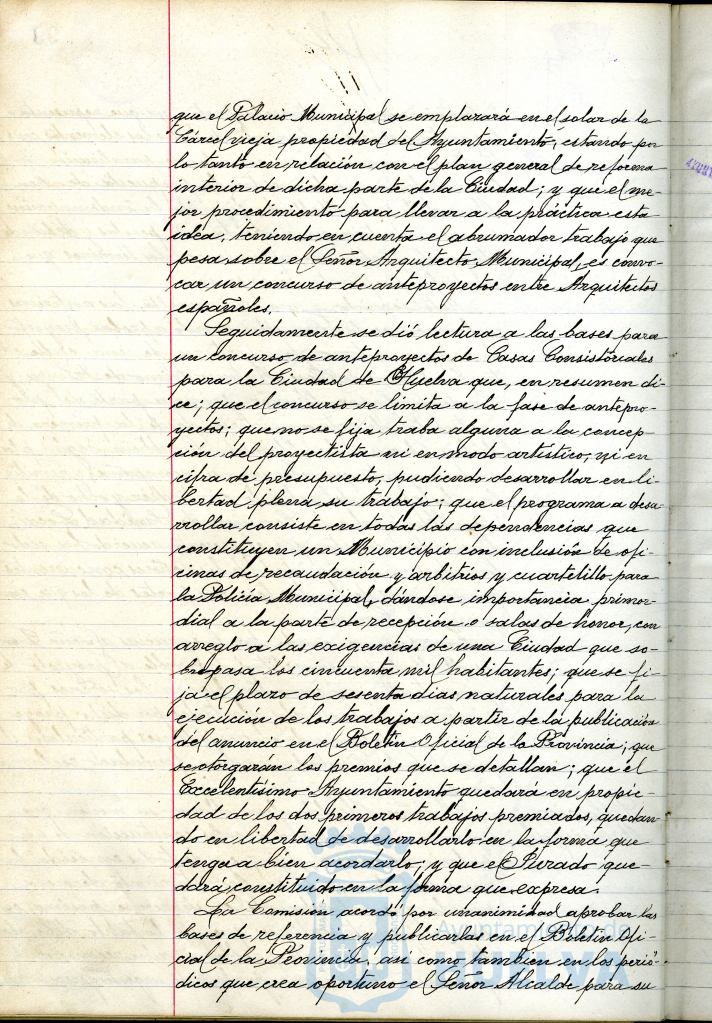 que el Palacio Municipal se emplazará en el solar de la
Cárcel vieja propiedad del Ayuntamiento, estando por
lo tanto en relación con el plan general de reforma
interior de dicha parte de la Ciudad; y que el me-
jor procedimiento para llevar a la práctica esta
idea, teniendo en cuenta el abrumador trabajo que
pesa sobre el Señor Arquitecto Municipal, es convo-
car un concurso de anteproyectos entre Arquitectos
españoles.
Seguidamente se dió lectura a las bases para
un concurso de anteproyectos de Casas Consistoriales
para la Ciudad de Huelva que, en resumen di-
ce; que el concurso se limita a la fase de antepro-
yectos; que no se fija traba alguna a la concep-
ción del proyectista ni en modo artístico, ni en
cifra de presupuesto, pudiendo desarrollar en li-
bertad plena su trabajo; que el programa a desa-
rrollar consiste en todas las dependencias que
constituyen un Municipio con inclusión de ofi-
cinas de recaudación y arbitrios y cuartelillo para
la Policia Municipal, dándose importancia primor-
dial a la parte de recepción o salas de honor, con
arreglo a las exigencias de una Ciudad que so-
brepasa los cincuenta mil habitantes; que se fi-
ja el plazo de sesenta dias naturales para la
ejecución de los trabajos a partir de la publicación
del anuncio en el Boletin Oficial de la Provincia; que
se otorgarán los premios que se detallan; que el
Excelentisimo Ayuntamiento quedará en propie-
dad de los dos primeros trabajos premiados, quedan-
do en libertad de desarrollarlo en la forma que
tenga a bien acordarlo; y que el Jurado que-
dará constituido en la forma que expresa.
La Comisión acordó por unanimidad aprobar las
bases de referencia y publicarlas en el Boletin Ofi-
cial de la Provincia, asi como tambien en los perió-
dicos que crea oportuno el Señor Alcalde para su
Ayuntamiento de
HUELVA